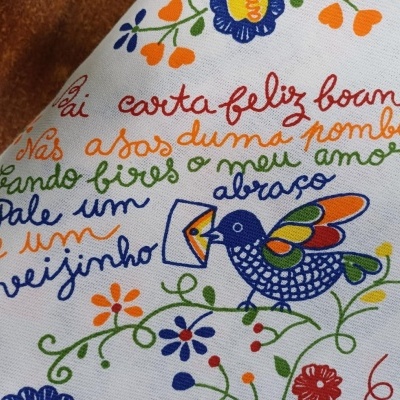 Bai carta feliz boan
Nas asas duma pomb
ando bires o meu amo
Dale um abraço
e um
veijinho